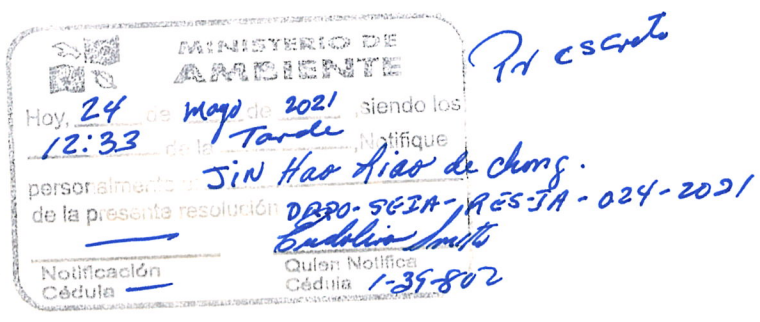 MINISTERIO DE
AMBIENTE
Por escrito
Hoy, 24 de mayo de 2021, siendo los
12:33 de la Tarde, Notifique
personalmente a Jin Hao Liao de Chong.
de la presente resolución DRPO-SEIA-RES-IA-024-2021
Notificación
Cédula —
Quien Notifica
Cédula 1-39-802